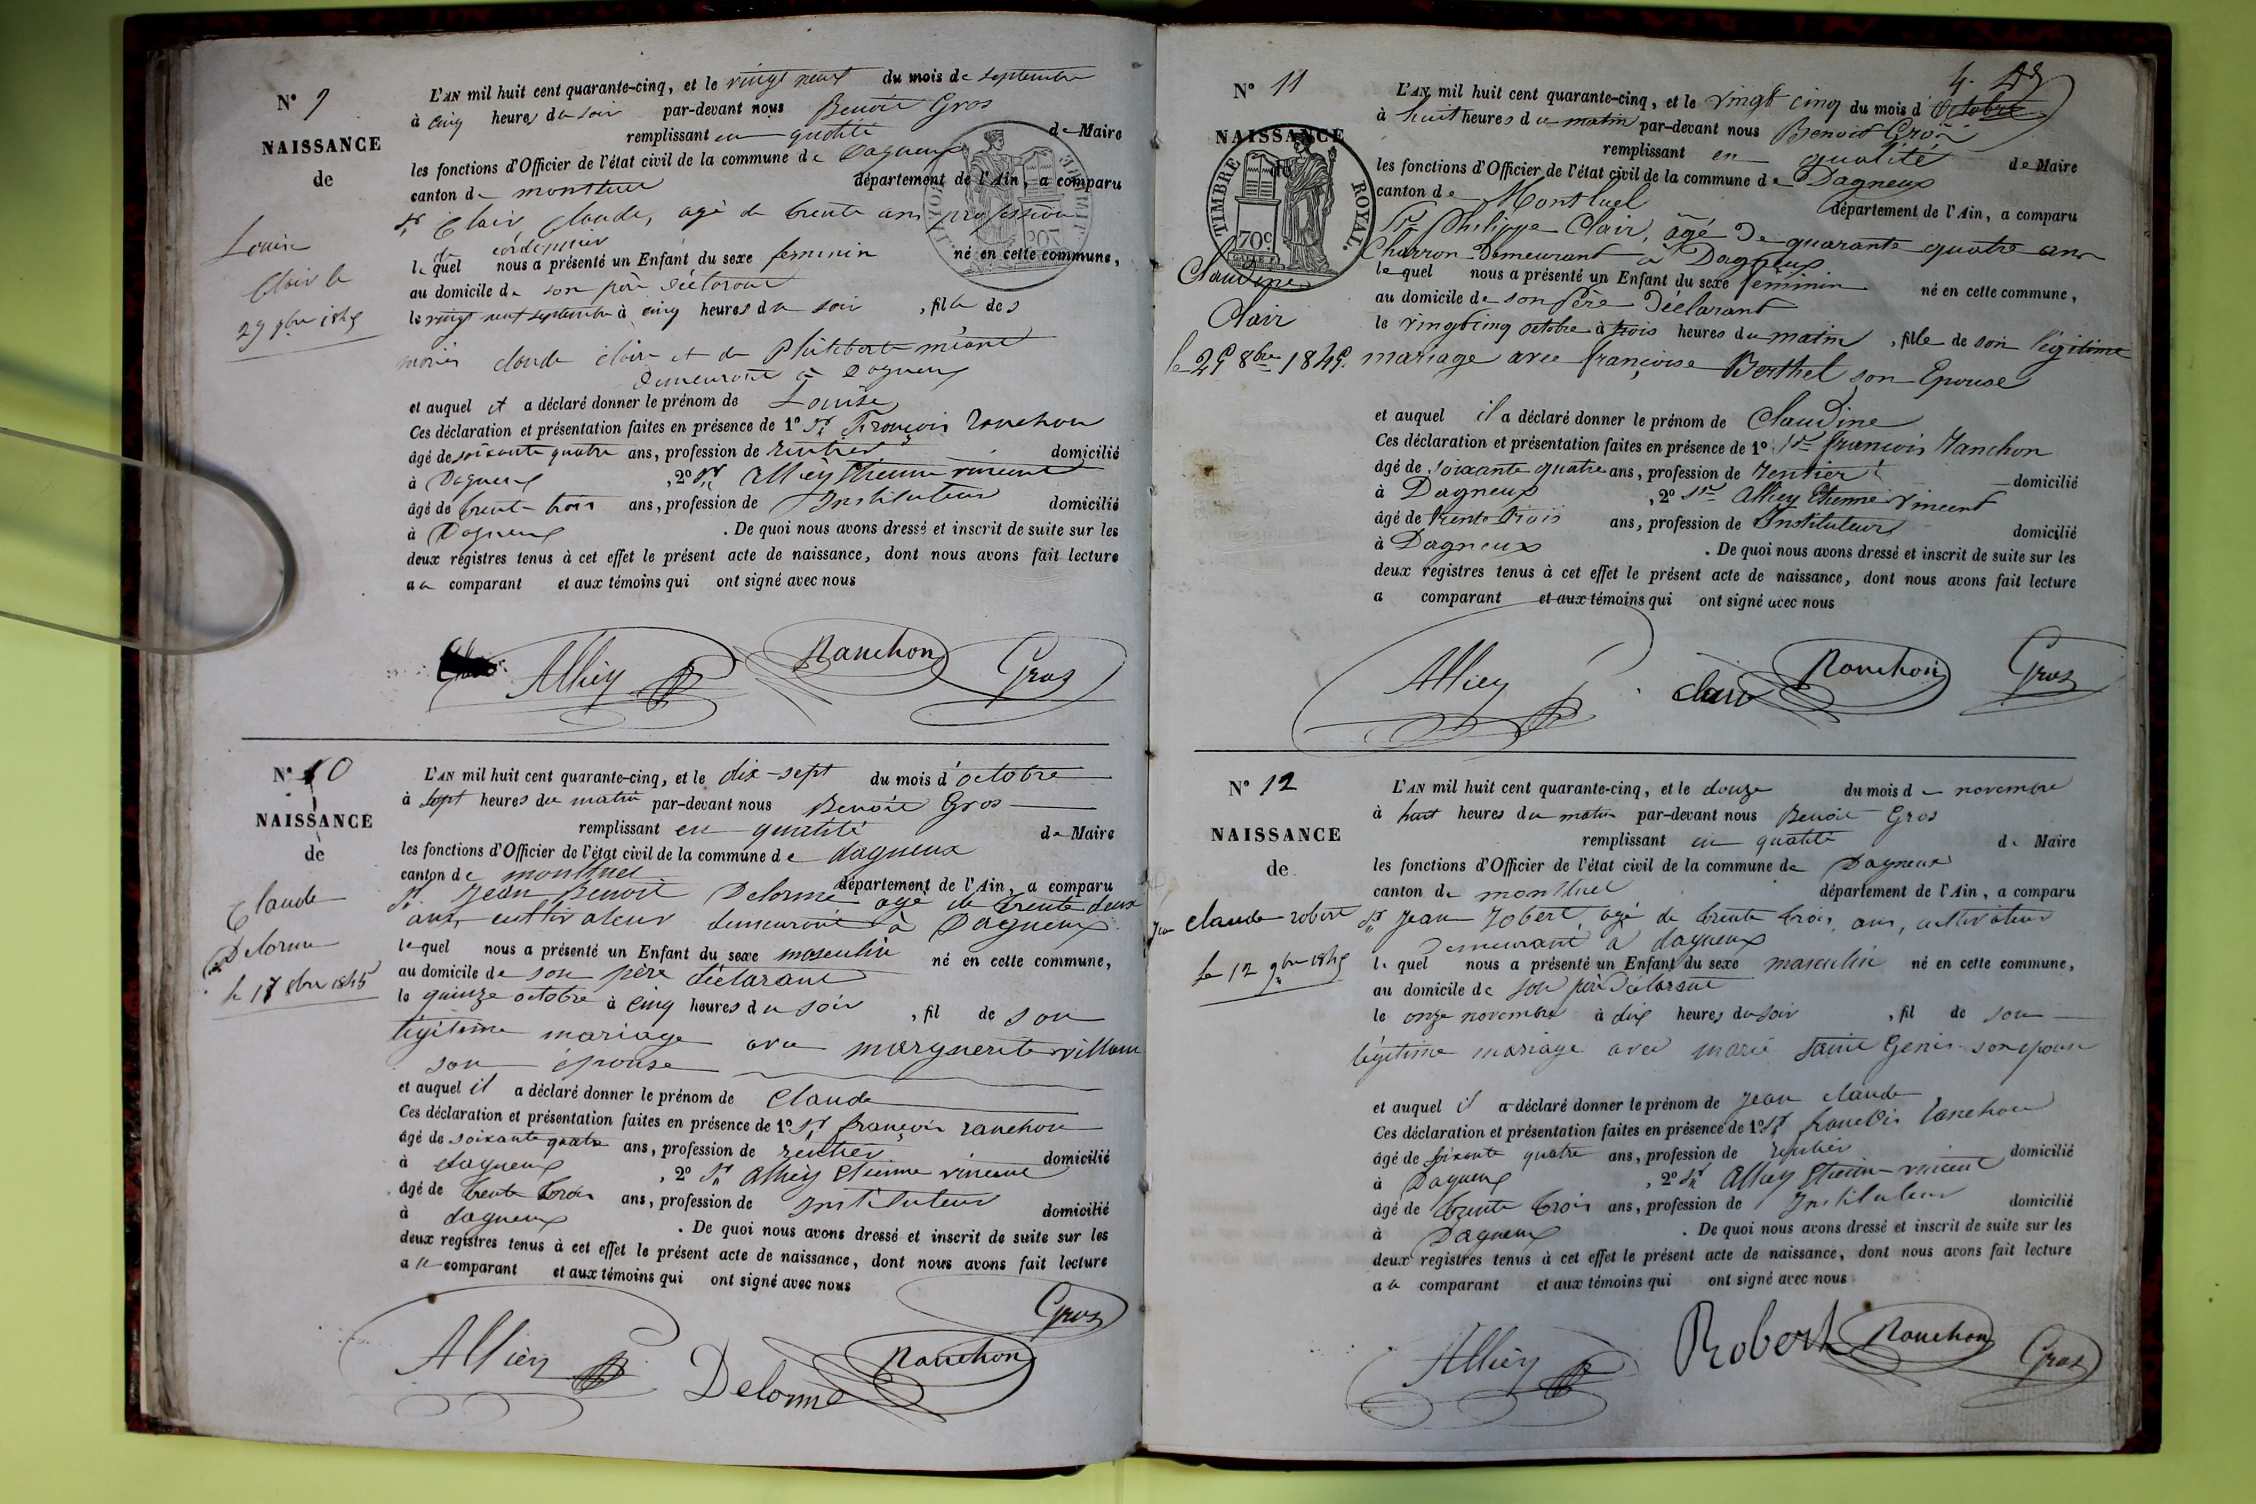 N° 9
NAISSANCE
de
Louise
Clair le
29 9bre 1845
L'AN mil huit cent quarante-cinq, et le vingt neuf du mois de septembre
à cinq heures du soir par-devant nous Benoit Gros
remplissant en qualité de Maire
les fonctions d'Officier de l'état civil de la commune de Dagneux
canton de montluel département de l'Ain, a comparu
Sr Clair Claude, agé de trente ans profession
de cordonnier
lequel nous a présenté un Enfant du sexe feminin né en cette commune,
au domicile de son père déclarant
le vingt neuf septembre à cinq heures du soir, fille des
mariés claude clair et de Philiberte
demeurant à Dagneux
et auquel il a déclaré donner le prénom de Louise
Ces déclaration et présentation faites en présence de 1° Sr François ranchon
âgé de soixante quatre ans, profession de rentier domicilié
à Dagneux, 2° Sr Alliey Etienne vincent
âgé de trente trois ans, profession de Instituteur domicilié
à Dagneux. De quoi nous avons dressé et inscrit de suite sur les
deux registres tenus à cet effet le présent acte de naissance, dont nous avons fait lecture
au comparant et aux témoins qui ont signé avec nous
Alliey Ranchon Gros
N° 10
NAISSANCE
de
Claude
Delorme
le 17 8bre 1845
L'AN mil huit cent quarante-cinq, et le dix-sept du mois d'octobre
à sept heures du matin par-devant nous Benoit Gros
remplissant en qualité de Maire
les fonctions d'Officier de l'état civil de la commune de dagneux
canton de montluel département de l'Ain, a comparu
Sr Jean Benoit Delorme agé de trente deux
ans, cultivateur demeurant à Dagneux
lequel nous a présenté un Enfant du sexe masculin né en cette commune,
au domicile de son père déclarant
le quinze octobre à cinq heures du soir, fil de son
légitime mariage avec marguerite
son épouse
et auquel il a déclaré donner le prénom de Claude
Ces déclaration et présentation faites en présence de 1° Sr françois ranchon
âgé de soixante quatre ans, profession de rentier domicilié
à dagneux, 2° Sr Alliey Etienne vincent
âgé de trente trois ans, profession de Instituteur domicilié
à dagneux. De quoi nous avons dressé et inscrit de suite sur les
deux registres tenus à cet effet le présent acte de naissance, dont nous avons fait lecture
au comparant et aux témoins qui ont signé avec nous
Gros
Alliey Delorme Ranchon
4.
N° 11
NAISSANCE
de
TIMBRE ROYAL.
70c
Claudine
Clair
le 25 8bre 1845.
L'AN mil huit cent quarante-cinq, et le vingt cinq du mois d'Octobre
à huit heures du matin par-devant nous Benoit Gros
remplissant en qualité de Maire
les fonctions d'Officier de l'état civil de la commune de Dagneux
canton de Montluel département de l'Ain, a comparu
Sr Philippe Clair, âgé de quarante quatre ans
Charron Demeurant à Dagneux
lequel nous a présenté un Enfant du sexe féminin né en cette commune,
au domicile de son Père Déclarant
le vingt cinq octobre à trois heures du matin, fille de son légitime
mariage avec françoise Berthel son Epouse
et auquel il a déclaré donner le prénom de Claudine
Ces déclaration et présentation faites en présence de 1° Sr françois Ranchon
âgé de soixante quatre ans, profession de rentier domicilié
à Dagneux, 2° Sr Alliey Etienne Vincent
âgé de trente trois ans, profession de Instituteur domicilié
à Dagneux. De quoi nous avons dressé et inscrit de suite sur les
deux registres tenus à cet effet le présent acte de naissance, dont nous avons fait lecture
a comparant et aux témoins qui ont signé avec nous
Alliey clair Ranchon Gros
N° 12
NAISSANCE
de
Jean claude robert
le 12 9bre 1845
L'AN mil huit cent quarante-cinq, et le douze du mois de novembre
à huit heures du matin par-devant nous Benoit Gros
remplissant en qualité de Maire
les fonctions d'Officier de l'état civil de la commune de Dagneux
canton de montluel département de l'Ain, a comparu
Sr Jean robert, agé de trente trois ans, cultivateur
demeurant à dagneux
lequel nous a présenté un Enfant du sexe masculin né en cette commune,
au domicile de son père déclarant
le onze novembre à dix heures du soir, fil de son
légitime mariage avec marie saint Genis son épouse
et auquel il a déclaré donner le prénom de Jean claude
Ces déclaration et présentation faites en présence de 1° Sr françois ranchon
âgé de soixante quatre ans, profession de rentier domicilié
à Dagneux, 2° Sr Alliey Etienne vincent
âgé de trente trois ans, profession de Instituteur domicilié
à Dagneux. De quoi nous avons dressé et inscrit de suite sur les
deux registres tenus à cet effet le présent acte de naissance, dont nous avons fait lecture
au comparant et aux témoins qui ont signé avec nous
Alliey Robert Ranchon Gros